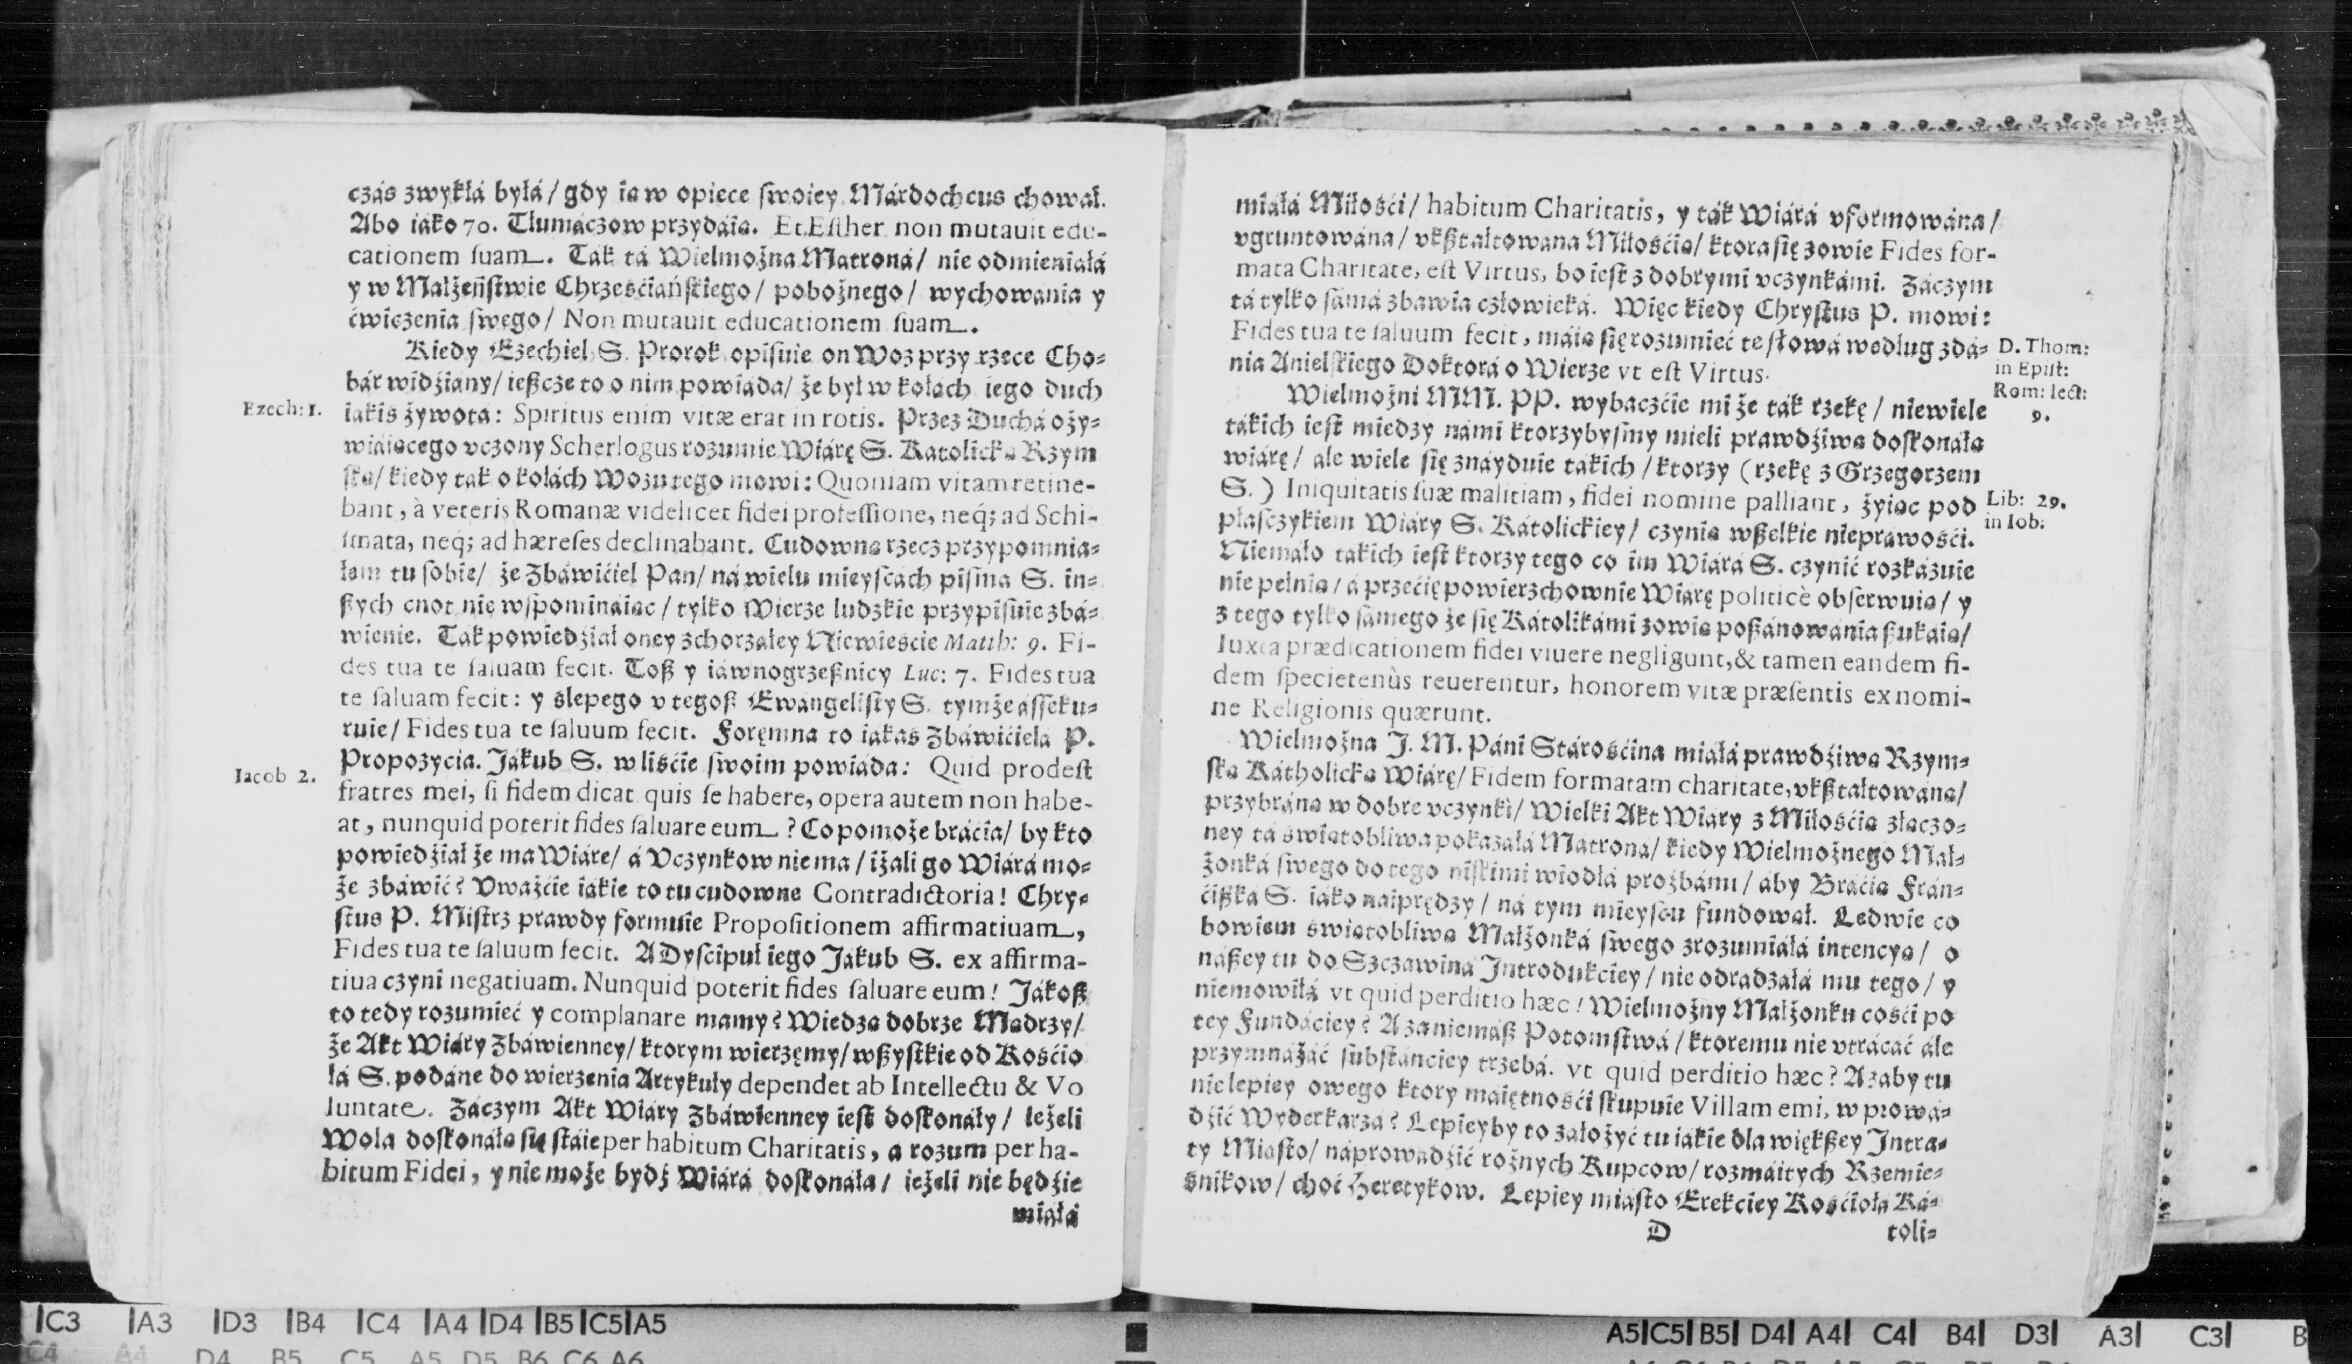 czás zwykłá byłá/ gdy ią w opiece swoiey Márdocheus chował.
Abo iáko 70. Tłumáczow przydáią. Et Esther non mutauit edu-
cationem suam. Ták tá Wielmożna Mátroná/ nie odmieniáłá
y w Małżeństwie Chrześćiáńskiego/ pobożnego/ wychowania y
ćwiczenia swego/ Non mutauit educationem suam.
Kiedy Ezechiel S. Prorok opisuie on Woz przy rzece Cho-
bár widźiány/ ieszcze to o nim powiáda/ że był w kołách iego duch
Ezech: 1.
iákiś żywotá: Spiritus enim vitæ erat in rotis. Przez Duchá oży-
wiáiącego vczony Scherlogus rozumie Wiárę S. Kátolicką Rzym
ską/ kiedy ták o kołách Wozu tego mowi: Quoniam vitam retine-
bant, à veteris Romanæ videlicet fidei professione, neq; ad Schi-
smata, neq; ad hæreses declinabant. Cudowną rzecz przypomnia-
łem tu sobie/ że Zbáwićiel Pan/ ná wielu mieyscách pismá S. in-
szych cnot nie wspomináiąc/ tylko Wierze ludzkie przypisuie zbá-
wienie. Ták powiedźiał oney zchorzáłey Niewieście Matth: 9. Fi-
des tua te saluam fecit. Tosz y iáwnogrzesznicy Luc: 7. Fides tua
te saluam fecit: y ślepego v tegosz Ewángelisty S. tymże ásseku-
ruie/ Fides tua te saluum fecit. Foręmna to iákaś Zbáwićielá P.
Propozycia. Jákub S. w liśćie swoim powiáda: Quid prodest
Iacob 2.
fratres mei, si fidem dicat quis se habere, opera autem non habe-
at, nunquid poterit fides saluare eum? Co pomoże bráćia/ by kto
powiedźiał że ma Wiáre/ á Vczynkow nie ma/ iżali go Wiárá mo-
że zbáwić? Vważćie iákie to tu cudowne Contradictoria! Chry-
stus P. Mistrz prawdy formuie Propositionem affirmatiuam,
Fides tua te saluum fecit. A Dyscipuł iego Jákub S. ex affirma-
tiua czyni negatiuam. Nunquid poterit fides saluare eum! Jákosz
to tedy rozumieć y complanare mamy? Wiedzą dobrze Mądrzy/
że Akt Wiáry Zbáwienney/ ktorym wierzęmy/ wszystkie od Kośćio
łá S. podáne do wierzenia Artykuły dependet ab Intellectu & Vo
luntate. Záczym Akt Wiáry Zbáwienney iest doskonáły/ ieżeli
Wola doskonáła się stáie per habitum Charitatis, a rozum per ha-
bitum Fidei, y nie może bydź Wiárá doskonáła/ ieżeli nie będźie
miáłá
miáłá Miłośći/ habitum Charitatis, y ták Wiárá vformowána/
vgruntowána/ vkształtowana Miłośćią/ ktora się zowie Fides for-
mata Charitate, est Virtus, bo iest z dobrymi vczynkámi. Záczym
tá tylko sámá zbawia człowieká. Więc kiedy Chrystus P. mowi:
Fides tua te saluum fecit, máią się rozumieć te słowá według zdá-
nia Anielskiego Doktorá o Wierze vt est Virtus.
D. Thom:
in Epist:
Rom: lect:
9.
Wielmożni MM. PP. wybaczćie mi że ták rzekę/ niewiele
tákich iest miedzy námi ktorzybysmy mieli prawdźiwą doskonáłą
wiárę/ ale wiele się znáyduie tákich/ ktorzy (rzekę z Grzegorzem
S.) Iniquitatis suæ malitiam, fidei nomine palliant, żyiąc pod
Lib: 29.
in Iob:
płasczykiem Wiáry S. Kátolickiey/ czynią wszelkie niepráwośći.
Niemáło tákich iest ktorzy tego co im Wiárá S. czynić rozkázuie
nie pełnią/ á przećię powierzchownie Wiárę politicè obserwuią/ y
z tego tylko sámego że się Kátolikámi zowią poszánowánia szukáią/
Iuxta prædicationem fidei viuere negligunt, & tamen eandem fi-
dem specietenùs reuerentur, honorem vitæ præsentis ex nomi-
ne Religionis quærunt.
Wielmożna J. M. Páni Stárośćina miáłá prawdźiwą Rzym-
ską Kátholicką Wiárę/ Fidem formatam charitate, vkształtowáną/
przybráną w dobre vczynki/ Wielki Akt Wiáry z Miłośćią złączo-
ney tá świątobliwa pokazáłá Mátrona/ kiedy Wielmożnego Mał-
żonká swego do tego niskimi wiodłá proźbámi/ aby Bráćią Frán-
ćiszká S. iáko naiprędzy/ ná tym mieyscu fundował. Ledwie co
bowiem świątobliwą Małżonká swego zrozumiáłá intencyą/ o
nászey tu do Szczáwiná Introdukciey/ nie odradzáłá mu tego/ y
niemowiłá vt quid perditio hæc! Wielmożny Małżonku cośći po
tey Fundáciey? A zaniemász Potomstwá/ ktoremu nie vtrácáć ále
przymnáżáć substánciey trzebá. vt quid perditio hæc? Azaby tu
nie lepiey owego ktory máiętnośći skupuie Villam emi, w prowá-
dźić Wyderkarzá? Lepieyby to záłożyć tu iákie dla większey Intra-
ty Miásto/ náprowádźić rożnych Kupcow/ rozmáitych Rzemie-
śnikow/ choć Heretykow. Lepiey miásto Erekciey Kośćioła Ká-
D
toli-
|C3 |A3 |D3 |B4 |C4 |A4 |D4 |B5 |C5 |A5
A5| C5| B5| D4| A4| C4| B4| D3| A3| C3| B
C4 A4 D4 B5 C5 A5 D5 B6 C6 A6